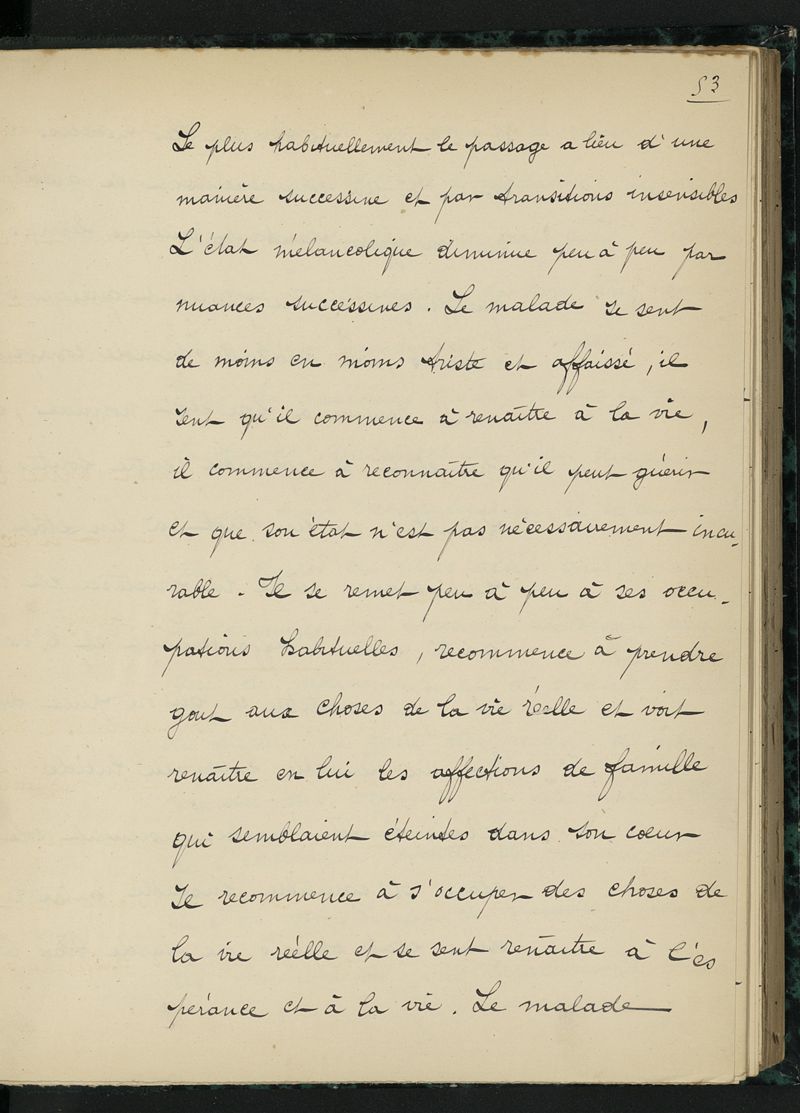 53
Le plus habituellement le passage a lieu d'une
manière successive et par transitions insensibles
L'état mélancolique diminue peu à peu par
nuances successives. Le malade se sent
de moins en moins triste et affaissé, il
sent qu'il commence à renaître à la vie,
il commence à reconnaître qu'il peut guérir
et que son état n'est pas nécessairement incu-
rable. Il se remet peu à peu à ses occu-
pations habituelles, recommence à prendre
gout aux choses de la vie réelle et voit
renaître en lui les affections de famille
qui semblaient éteintes dans son coeur
Il recommence à s'occuper des choses de
la vie réelle et se sent renaitre à l'es
pérance et à la vie. Le malade